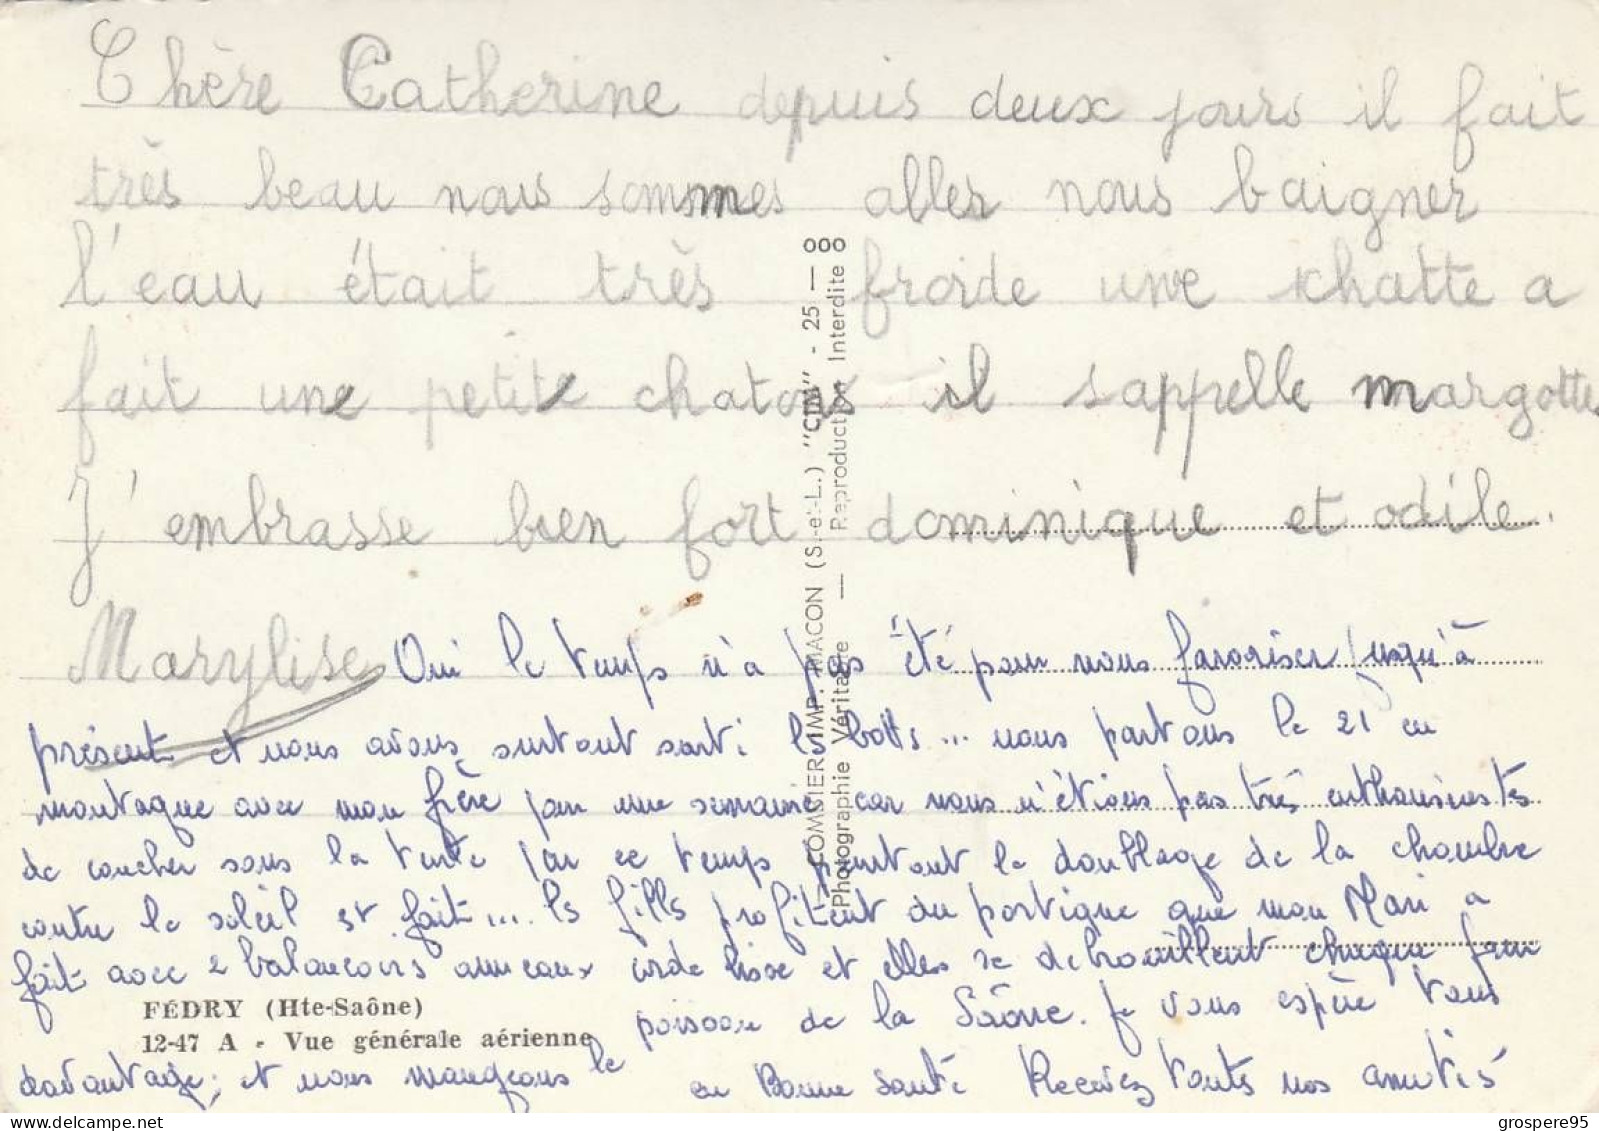 Chère Catherine depuis deux jours il fait
très beau nous sommes aller nous baigner
l'eau était très froide une chatte a
fait une petite chatons il sappelle margottes
J'embrasse bien fort dominique et odile.
Marylise Oui le temps n'a pas été pour nous favoriser jusqu'à
présent et nous avons surtout sorti les bottes... nous partons le 21 en
montagne avec mon frère pour une semaine car nous n'étions pas très enthousiastes
de coucher sous la tente par ce temps pourtant le doublage de la chambre
contre le soleil est fait... les filles profitent du portique que mon Mari a
fait avec 2 balançoirs anneaux corde lisse et elles se débrouillent chaque jour
davantage; et nous mangeons le
poisson de la Saône. Je vous espère tous
en Bonne santé Recevez toutes nos amitiés
FÉDRY (Hte-Saône)
12-47 A - Vue générale aérienne
COMBIER IMP. MACON (S.-et-L.) "CIM" - 25 — 000
Photographie Véritable — Reproduction Interdite
grospere95